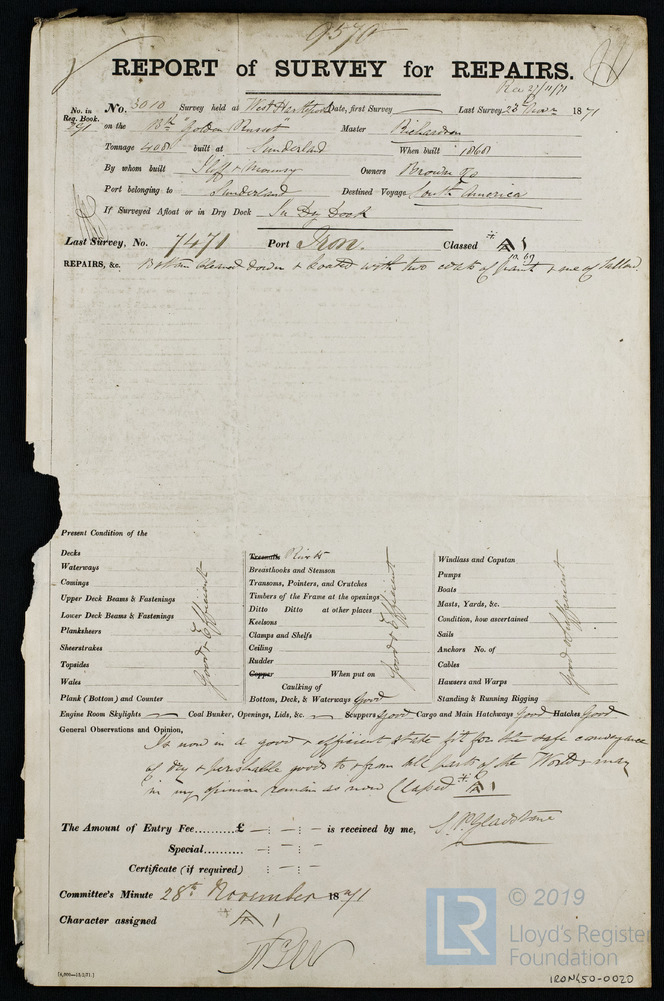 9570
REPORT of SURVEY for REPAIRS.
Rec 27/11/71
No. in Reg. Book. No. 3010 Survey held at West Hartlepool Date, first Survey Last Survey 23 Novr 1871
391 on the Bk "Golden Russet" Master Richardson
Tonnage 408 built at Sunderland When built 1868
By whom built Iliff & Mounsey Owners Brown & Co
Port belonging to Sunderland Destined Voyage South America
If Surveyed Afloat or in Dry Dock In Dry Dock
Last Survey, No. 7471 Port Iron. Classed A 1
10.69
REPAIRS, &c. Bottom cleaned down & coated with two coats of paint & one of Tallow.
Present Condition of the
Decks
Waterways
Comings
Upper Deck Beams & Fastenings
Lower Deck Beams & Fastenings
Planksheers
Sheerstrakes
Topsides
Wales
Plank (Bottom) and Counter
Good & Efficient
Treenails Rivets
Breasthooks and Stemson
Transoms, Pointers, and Crutches
Timbers of the Frame at the openings
Ditto Ditto at other places
Keelsons
Clamps and Shelfs
Ceiling
Rudder
Copper When put on
Caulking of
Bottom, Deck, & Waterways Good
Good & Efficient
Windlass and Capstan
Pumps
Boats
Masts, Yards, &c.
Condition, how ascertained
Sails
Anchors No. of
Cables
Hawsers and Warps
Standing & Running Rigging
Good & Efficient
Engine Room Skylights Coal Bunker, Openings, Lids, &c. Scuppers Good Cargo and Main Hatchways Good Hatches Good
General Observations and Opinion,
Is now in a good & efficient state fit for the safe conveyance
of dry & perishable goods to & from all parts of the World & may
in my opinion remain as now Classed A 1
The Amount of Entry Fee..........£ — : — : — is received by me,
Special.......... — : — : —
Certificate (if required) — : — : —
Gladstone
Committee's Minute 28th November 1871
Character assigned A 1
© 2019
LR
Lloyd's Register
Foundation
IRON450-0020